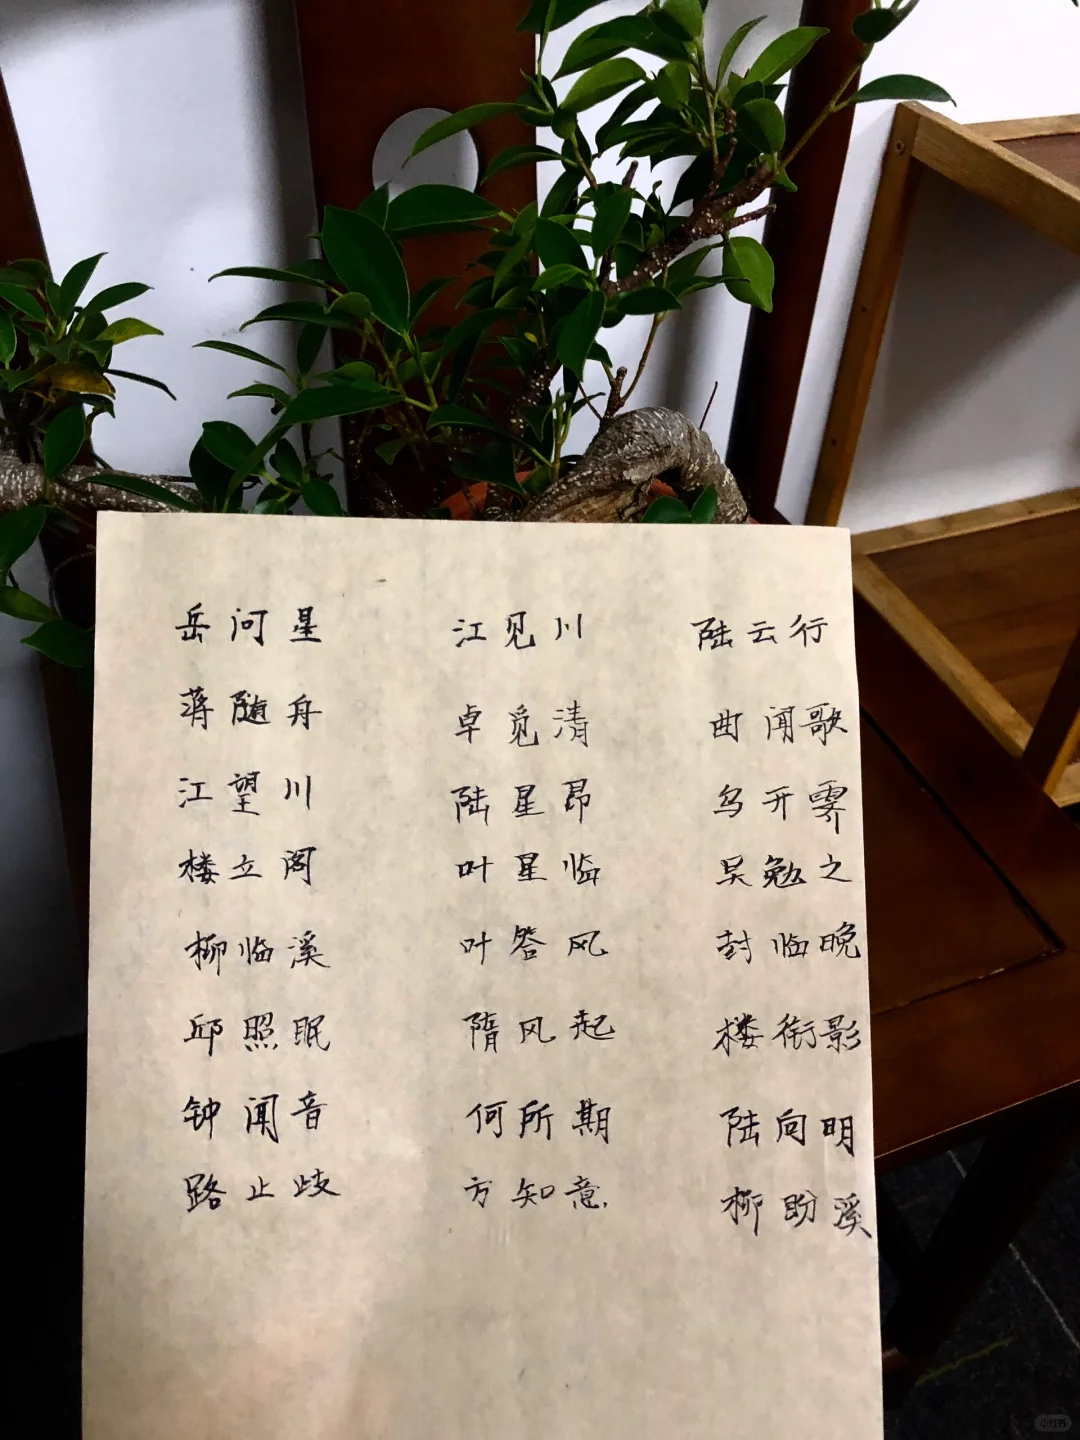 岳问星 江见川 陆云行
蒋随舟 卓觅清 曲闻歌
江望川 陆星昂 乌开霁
楼立阁 叶星临 吴勉之
柳临溪 叶答风 封临晚
邱照眠 隋风起 楼衔影
钟闻音 何所期 陆向明
路止歧 方知意 柳盼溪
小红书